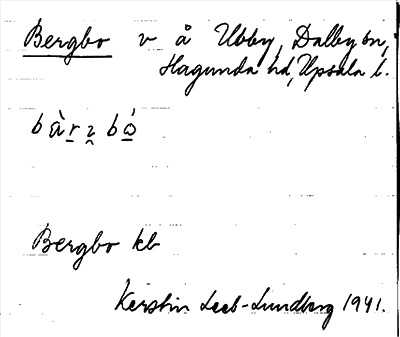 Bergbo v å Ubby, Dalby sn,
Hagunda hd, Upsala l.
bä̀rꝛ bó
Bergbo kb
Kerstin Leeb-Lundberg 1941.